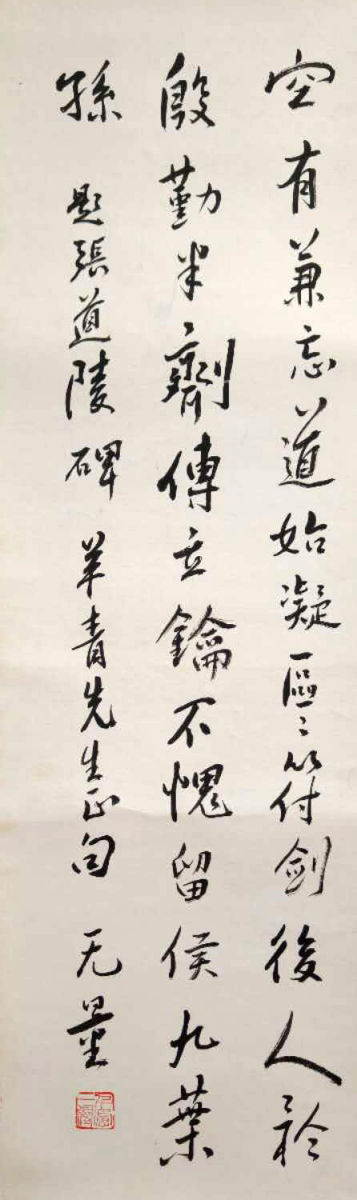 空有兼忘道始凝區〻符劍後人矜
殷勤半劑傳玄鑰不愧留侯九葉
孫 題張道陵碑 羊青先生正句 无量